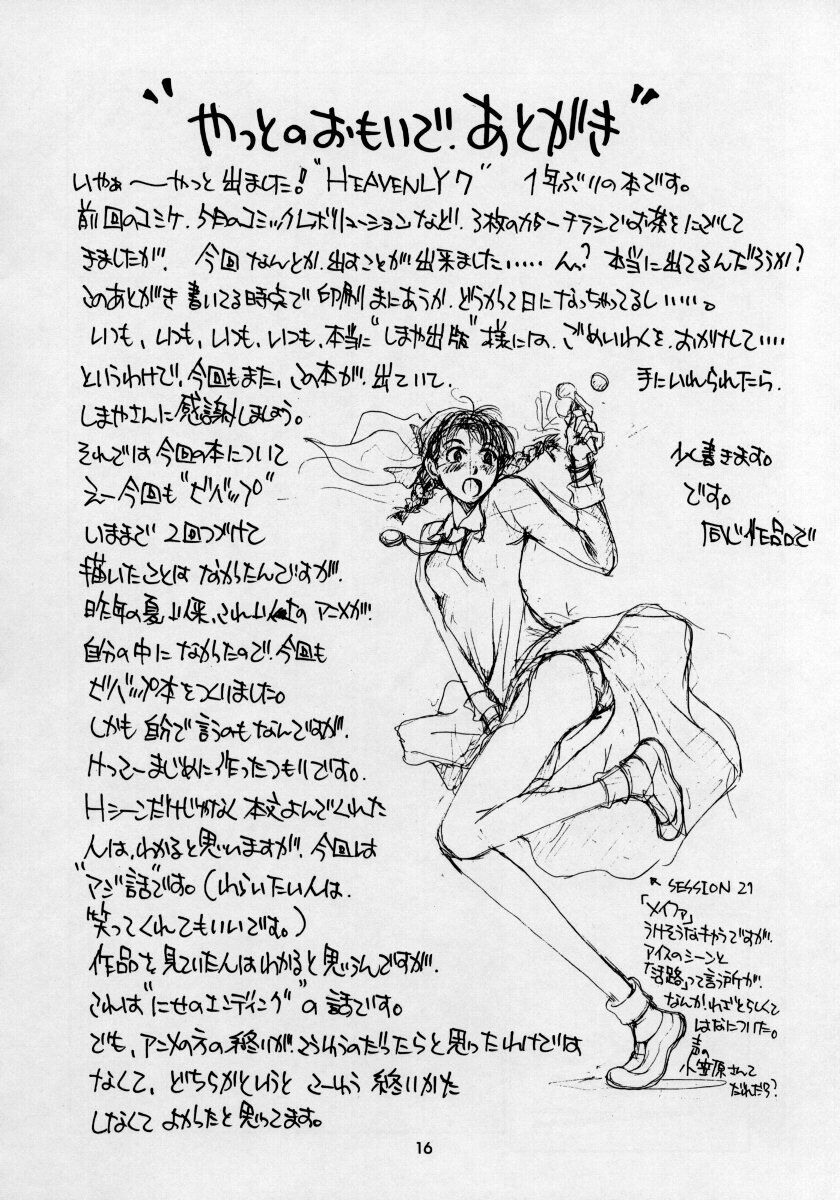 "やっとのおもいで!あとがき"
いやぁ〜やっと出ました!"HEAVENLY7" 1年ぶりの本です。
前回のコミケ、5月のコミックレボリューションなど!、3枚のカラーチラシでお茶をにごして
きましたが!、今回なんとか、出すことが出来ました‥‥‥ん?本当に出てるんだろうか?
このあとがき書いてる時点で印刷まにあうか、どうかって日になっちゃってるし‥‥‥。
いつも、いつも、いつも、いつも、本当に"しまや出版"様には、ごめいわくを、おかけして‥‥
というわけで、今回もまた、この本が、出ていて、手にいれられたら、
しまやさんに感謝しましょう。
それでは今回の本について 少く書きます。
えー今回も"ビバップ" です。
いままで2回つづけて 同じ作品で
描いたことはなかったんですが、
昨年の夏以来、これ以上のアニメが、
自分の中になかったので、今回も
ビバップ本をつくりました。
しかも自分で言うのもなんですが、
けっこーまじめに作ったつもりです。
Hシーンだけじゃなく本文よんでくれた
人は、わかると思いますが、今回は
"マジ話"です。(わらいたい人は、
笑ってくれてもいいです。)
作品を見ていた人はわかると思うんですが、
これは"にせのエンディング"の話です。
でも、アニメの方の終りが、こういうのだったらと思ったわけでは
なくて、どちらかというと こーゆう終りかた
しなくてよかったと思ってます。
↖ SESSION 21
「メイファ」
うけそうなキャラですが、
アイスのシーンと
「活路」って言う所が、
なんかわざとらしくて
はなについた。
声の
小笠原さんて
だれだろ?
16